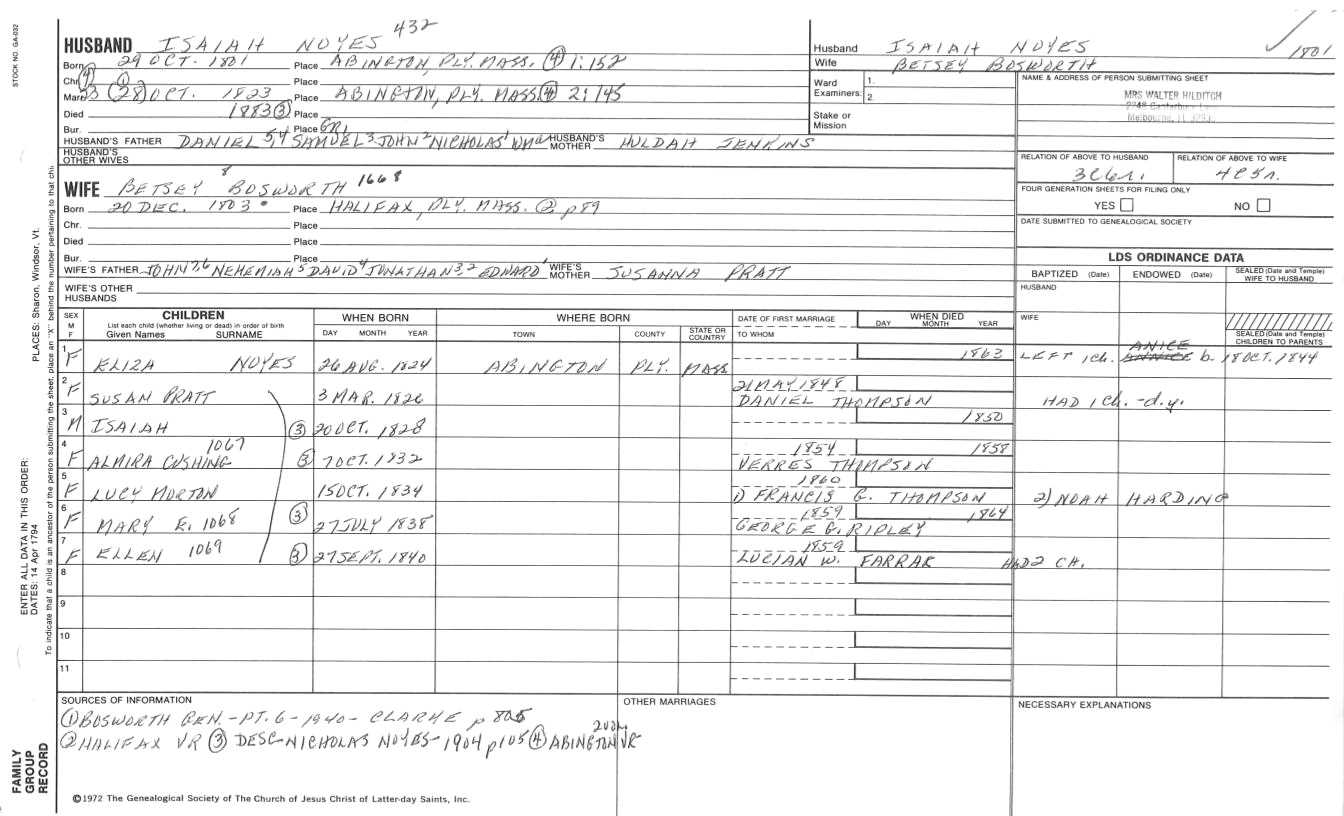 432
HUSBAND ISAIAH NOYES
Born 29 OCT. 1801 Place ABINGTON, PLY. MASS. ④ 1:152
Chr. Place
Marr. 3 (28) OCT. 1823 Place ABINGTON, PLY. MASS ④ 2:145
Died 1883 ③ Place
Bur. Place GR1
HUSBAND'S FATHER DANIEL 5,4 SAMUEL 3 JOHN 2 NICHOLAS 1 HUSBAND'S MOTHER HULDAH JENKINS
HUSBAND'S OTHER WIVES
WIFE BETSEY 8 BOSWORTH 1668
Born 20 DEC. 1803 Place HALIFAX, PLY. MASS. ② p89
Chr. Place
Died Place
Bur. Place
WIFE'S FATHER JOHN 7,6 NEHEMIAH 5 DAVID 4 JONATHAN 3,2 EDWARD 1 WIFE'S MOTHER SUSANNA PRATT
WIFE'S OTHER HUSBANDS
Husband ISAIAH NOYES 1801
Wife BETSEY BOSWORTH
Ward Examiners: 1. 2.
Stake or Mission
NAME & ADDRESS OF PERSON SUBMITTING SHEET
MRS WALTER HILDITCH
Melbourne,
RELATION OF ABOVE TO HUSBAND RELATION OF ABOVE TO WIFE
3C6r. 4C5r.
FOUR GENERATION SHEETS FOR FILING ONLY
YES NO
DATE SUBMITTED TO GENEALOGICAL SOCIETY
LDS ORDINANCE DATA
BAPTIZED (Date) ENDOWED (Date) SEALED (Date and Temple) WIFE TO HUSBAND
HUSBAND
WIFE
SEALED (Date and Temple) CHILDREN TO PARENTS
SEX M F CHILDREN List each child (whether living or dead) in order of birth Given Names SURNAME WHEN BORN DAY MONTH YEAR WHERE BORN TOWN COUNTY STATE OR COUNTRY DATE OF FIRST MARRIAGE TO WHOM WHEN DIED DAY MONTH YEAR
1 F ELIZA NOYES 26 AUG. 1824 ABINGTON PLY. MASS 1863 LEFT 1 ch. ANNICE ANICE b. 18 OCT. 1844
2 F SUSAN PRATT 3 MAR. 1826 21 MAY 1848 DANIEL THOMPSON HAD 1 ch. -d.y.
3 M ISAIAH ③ 20 OCT. 1828 1850
4 F ALMIRA CUSHING 1067 ③ 7 OCT. 1832 1854 VERRES THOMPSON 1858
5 F LUCY MORTON 15 OCT. 1834 1860 1) FRANCIS G. THOMPSON 2) NOAH HARDING
6 F MARY E. 1068 ③ 27 JULY 1838 1859 GEORGE G. RIPLEY 1864
7 F ELLEN 1069 ③ 27 SEPT. 1840 1859 LUCIAN W. FARRAR HAD 2 CH.
8
9
10
11
SOURCES OF INFORMATION
① BOSWORTH GEN. - PT. 6 - 1940 - CLARKE p 805
② HALIFAX VR ③ DESC-NICHOLAS NOYES-1904 p105 ④ ABINGTON VR
OTHER MARRIAGES
NECESSARY EXPLANATIONS
©1972 The Genealogical Society of The Church of Jesus Christ of Latter-day Saints, Inc.
STOCK NO. GA-032
PLACES: Sharon, Windsor, Vt.
ENTER ALL DATA IN THIS ORDER:
DATES: 14 Apr 1794
To indicate that a child is an ancestor of the person submitting the sheet, place an "X" behind the number pertaining to that
FAMILY GROUP RECORD